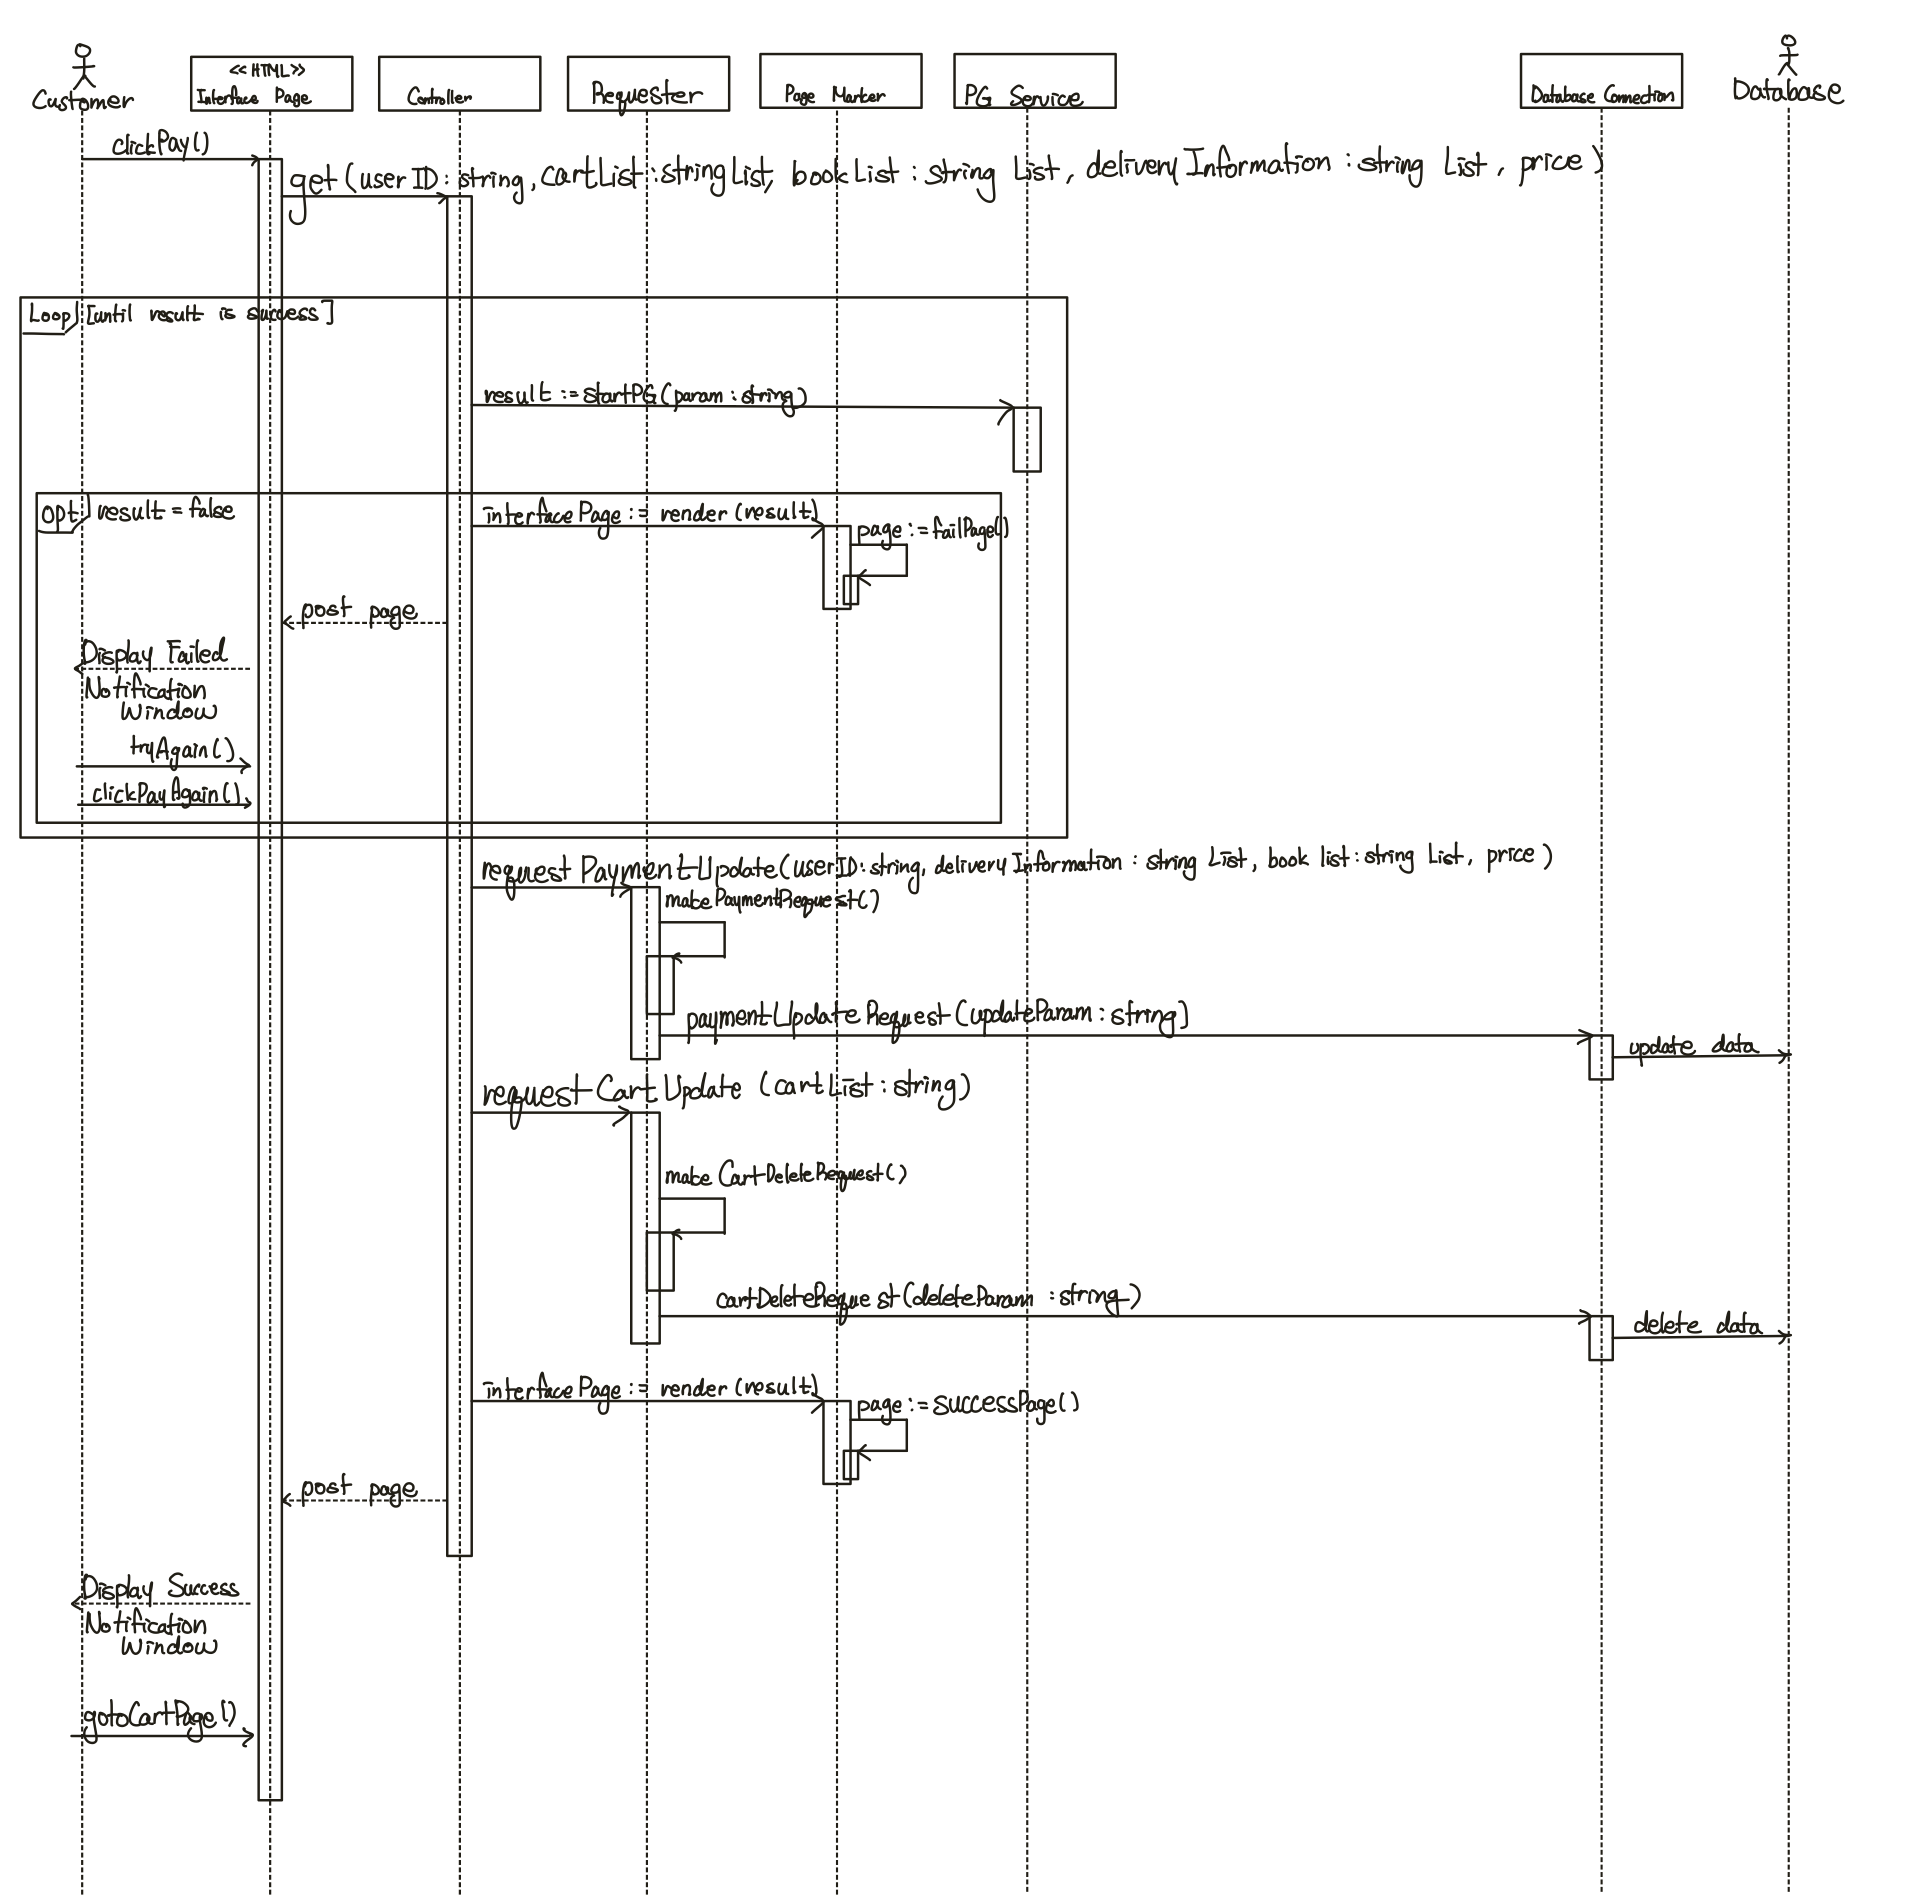 Customer
<<HTML>>
Interface Page
Controller
Requester
Page Marker
PG Service
Database Connection
Database
clickPay()
get(userID : string, CartList : string List, bookList : string List, deliveryInformation : string List, price)
Loop [until result is success]
result := startPG(param : string)
opt result = false
interfacePage := render(result)
page := failPage()
post page
Display Failed
Notification
Window
tryAgain()
clickPayAgain()
requestPaymentUpdate(userID : string, deliveryInformation : string List, book list : string List, price)
makePaymentRequest()
paymentUpdateRequest(updateParam : string)
update data
requestCartUpdate (cartList : string)
makeCartDeleteRequest()
cartDeleteRequest(deleteParam : string)
delete data
interfacePage := render(result)
page := SuccessPage()
post page
Display Success
Notification
Window
gotoCartPage()